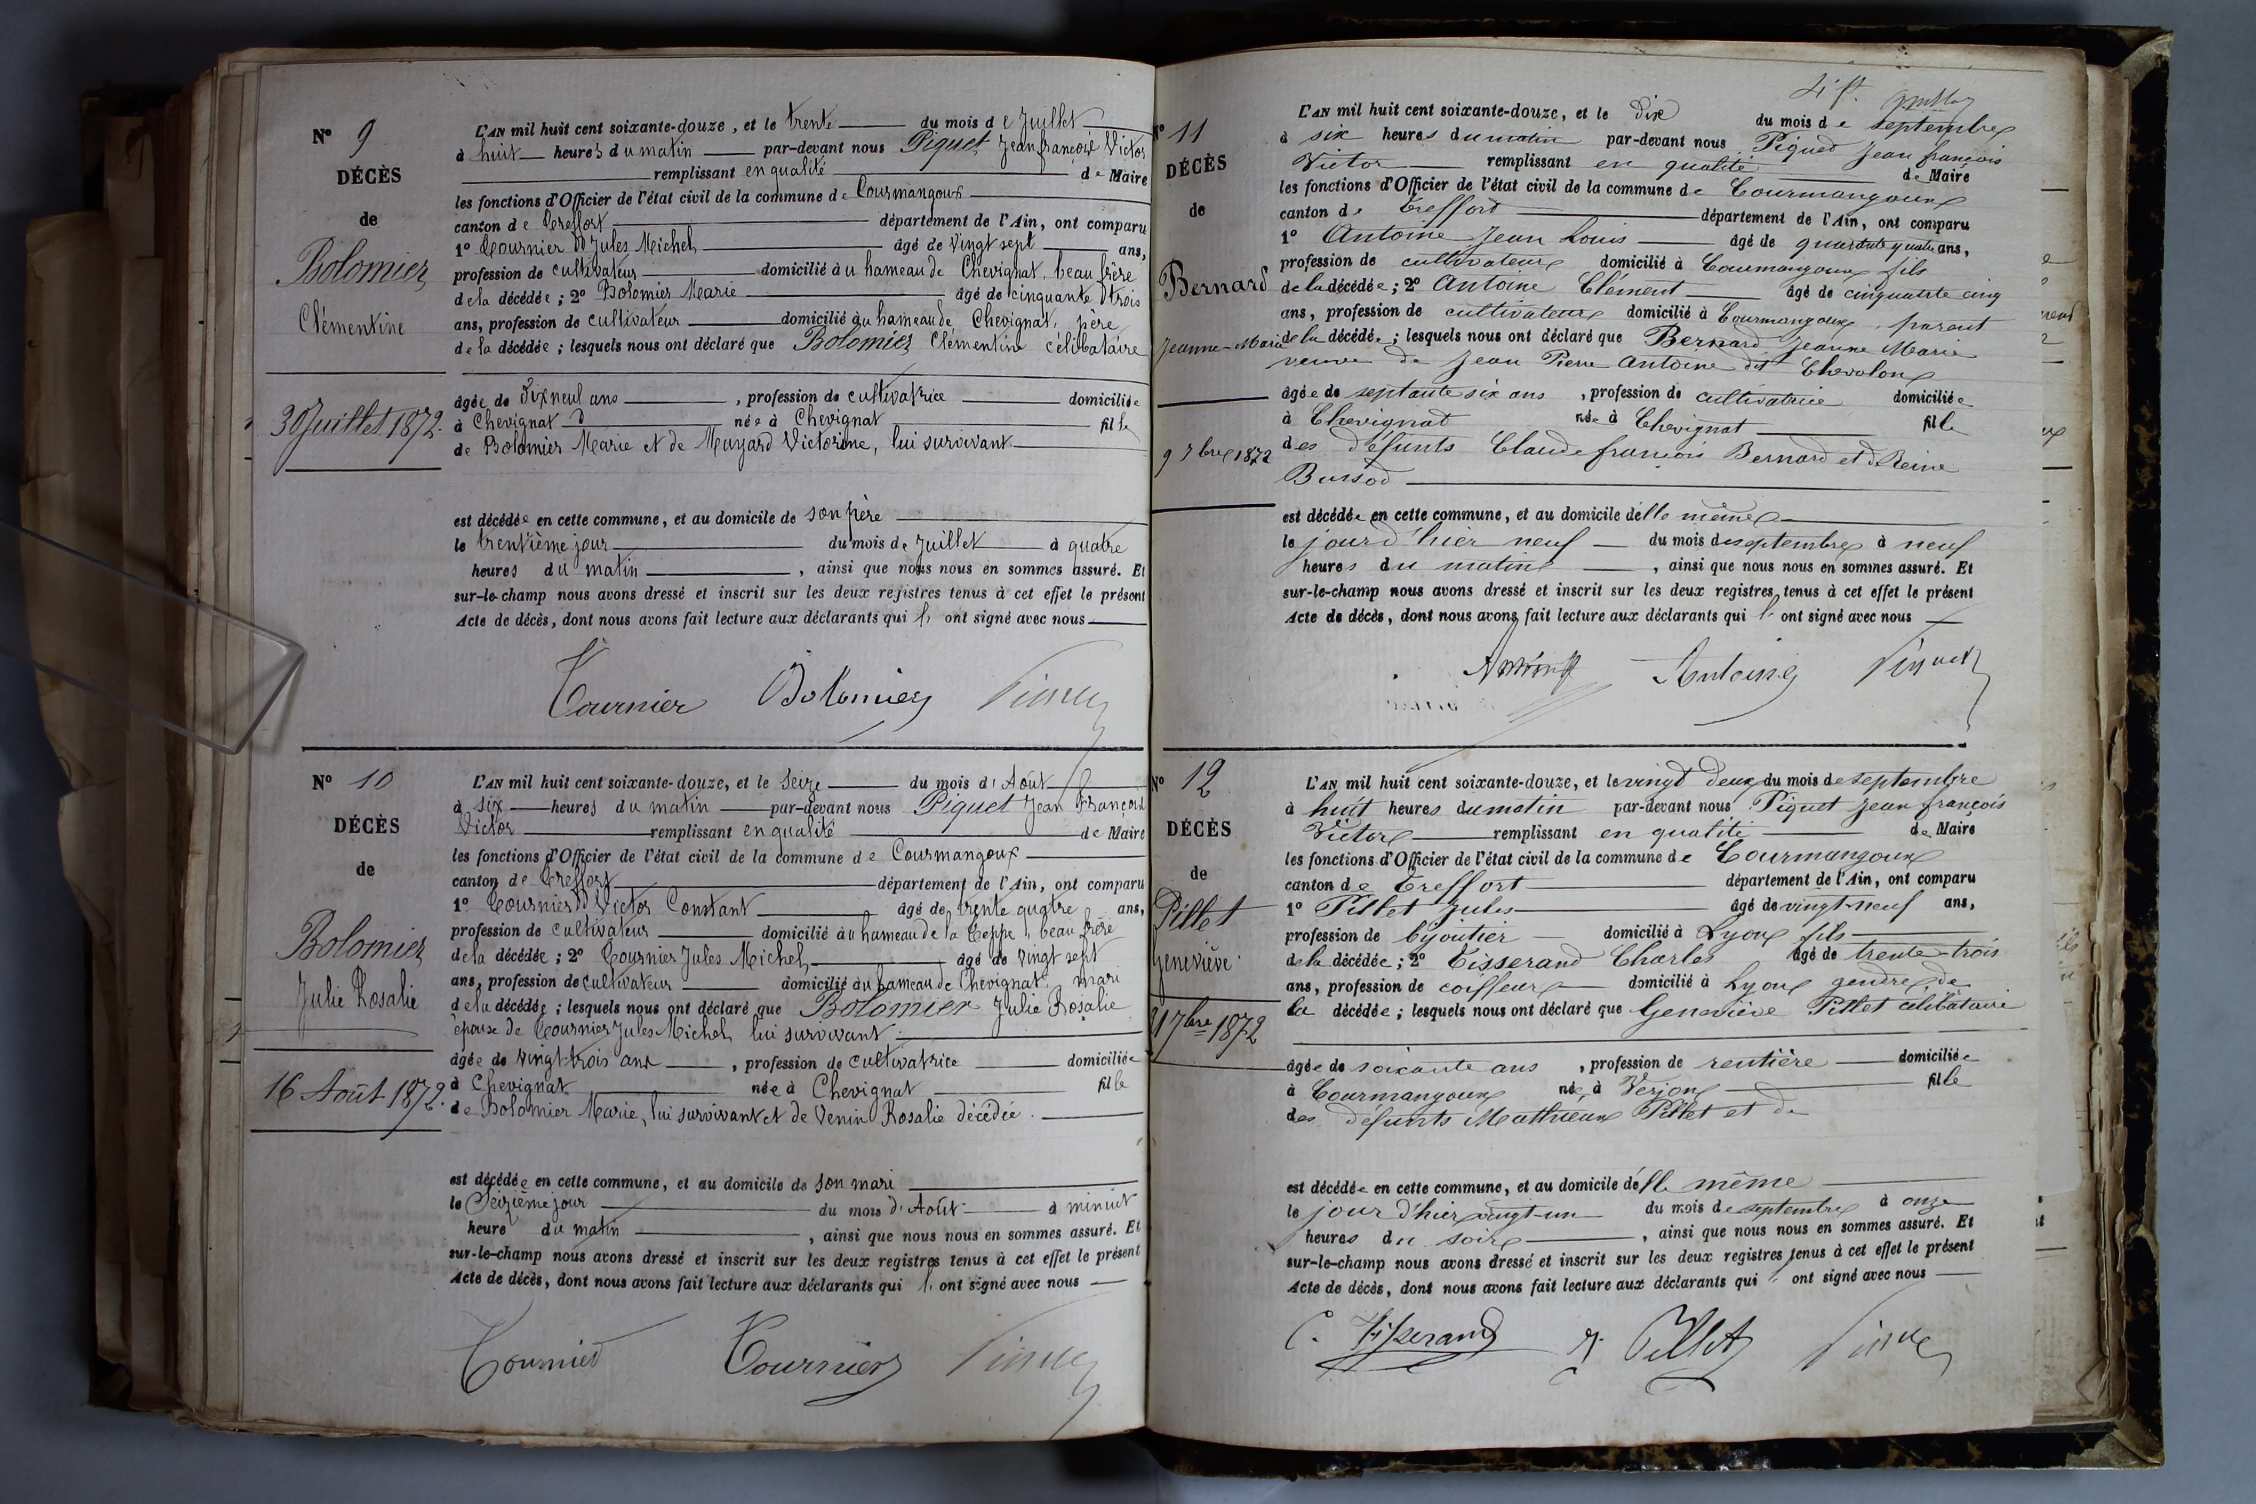 N° 9
DÉCÈS
de
Bolomier
Clémentine
30 Juillet 1872.
L'AN mil huit cent soixante-douze, et le trente du mois de Juillet
à huit heures du matin par-devant nous Piquet Jean françois Victor
remplissant en qualité de Maire
les fonctions d'Officier de l'état civil de la commune de Courmangoux
canton de Treffort département de l'Ain, ont comparu
1° Tournier Jules Michel âgé de Vingt sept ans,
profession de cultivateur domicilié au hameau de Chevignat, beau frère
de la décédée; 2° Bolomier Marie âgé de cinquante trois
ans, profession de cultivateur domicilié au hameau de Chevignat, père
de la décédée; lesquels nous ont déclaré que Bolomier Clémentine célibataire
âgée de Dix neuf ans, profession de cultivatrice domiciliée
à Chevignat née à Chevignat fille
de Bolomier Marie et de Muzard Victorine, lui survivant
est décédée en cette commune, et au domicile de son père
le trentième jour du mois de Juillet à quatre
heures du matin, ainsi que nous nous en sommes assuré. Et
sur-le-champ nous avons dressé et inscrit sur les deux registres tenus à cet effet le présent
Acte de décès, dont nous avons fait lecture aux déclarants qui ont signé avec nous
Tournier Bolomier Piquet
N° 10
DÉCÈS
de
Bolomier
Julie Rosalie
16 Août 1872.
L'AN mil huit cent soixante-douze, et le Seize du mois d'Août
à six heures du matin par-devant nous Piquet Jean François
Victor remplissant en qualité de Maire
les fonctions d'Officier de l'état civil de la commune de Courmangoux
canton de Treffort département de l'Ain, ont comparu
1° Tournier Victor Constant âgé de trente quatre ans,
profession de cultivateur domicilié au hameau de la Teppe, beau frère
de la décédée; 2° Tournier Jules Michel âgé de vingt sept
ans, profession de cultivateur domicilié au hameau de Chevignat, mari
de la décédée; lesquels nous ont déclaré que Bolomier Julie Rosalie
épouse de Tournier Jules Michel, lui survivant
âgée de vingt trois ans, profession de cultivatrice domiciliée
à Chevignat née à Chevignat fille
de Bolomier Marie, lui survivant et de Venin Rosalie décédée.
est décédée en cette commune, et au domicile de son mari
le Seizième jour du mois d'Août à minuit
heure du matin, ainsi que nous nous en sommes assuré. Et
sur-le-champ nous avons dressé et inscrit sur les deux registres tenus à cet effet le présent
Acte de décès, dont nous avons fait lecture aux déclarants qui ont signé avec nous
Tournier Tournier Piquet
N° 11
DÉCÈS
de
Bernard
Jeanne-Marie
9 7bre 1872
L'AN mil huit cent soixante-douze, et le dix du mois de septembre
à six heures du matin par-devant nous Piquet Jean françois
Victor remplissant en qualité de Maire
les fonctions d'Officier de l'état civil de la commune de Courmangoux
canton de Treffort département de l'Ain, ont comparu
1° Antoine Jean Louis âgé de quarante quatre ans,
profession de cultivateur domicilié à Courmangoux fils
de la décédée; 2° Antoine Clément âgé de cinquante cinq
ans, profession de cultivateur domicilié à Courmangoux, parent
de la décédée; lesquels nous ont déclaré que Bernard Jeanne Marie
veuve de Jean Pierre Antoine dit Chevolon
âgée de septante six ans, profession de cultivatrice domiciliée
à Chevignat née à Chevignat fille
des défunts Claude françois Bernard et de Reine
Bussod
est décédée en cette commune, et au domicile d'elle même
le jour d'hier neuf du mois de septembre à neuf
heures du matin, ainsi que nous nous en sommes assuré. Et
sur-le-champ nous avons dressé et inscrit sur les deux registres tenus à cet effet le présent
Acte de décès, dont nous avons fait lecture aux déclarants qui ont signé avec nous
Antoine Antoine Piquet
N° 12
DÉCÈS
de
Pillet
Geneviève
21 7bre 1872
L'AN mil huit cent soixante-douze, et le vingt deux du mois de septembre
à huit heures du matin par-devant nous Piquet Jean françois
Victor remplissant en qualité de Maire
les fonctions d'Officier de l'état civil de la commune de Courmangoux
canton de Treffort département de l'Ain, ont comparu
1° Pillet Jules âgé de vingt-neuf ans,
profession de bijoutier domicilié à Lyon fils
de la décédée; 2° Tisserand Charles âgé de trente-trois
ans, profession de coiffeur domicilié à Lyon gendre de
la décédée; lesquels nous ont déclaré que Geneviève Pillet célibataire
âgée de soixante ans, profession de rentière domiciliée
à Courmangoux née à Verjon fille
des défunts Mathieu Pillet et de
est décédée en cette commune, et au domicile d'elle même
le jour d'hier vingt-un du mois de septembre à onze
heures du soir, ainsi que nous nous en sommes assuré. Et
sur-le-champ nous avons dressé et inscrit sur les deux registres tenus à cet effet le présent
Acte de décès, dont nous avons fait lecture aux déclarants qui ont signé avec nous
C. Tisserand J. Pillet Piquet